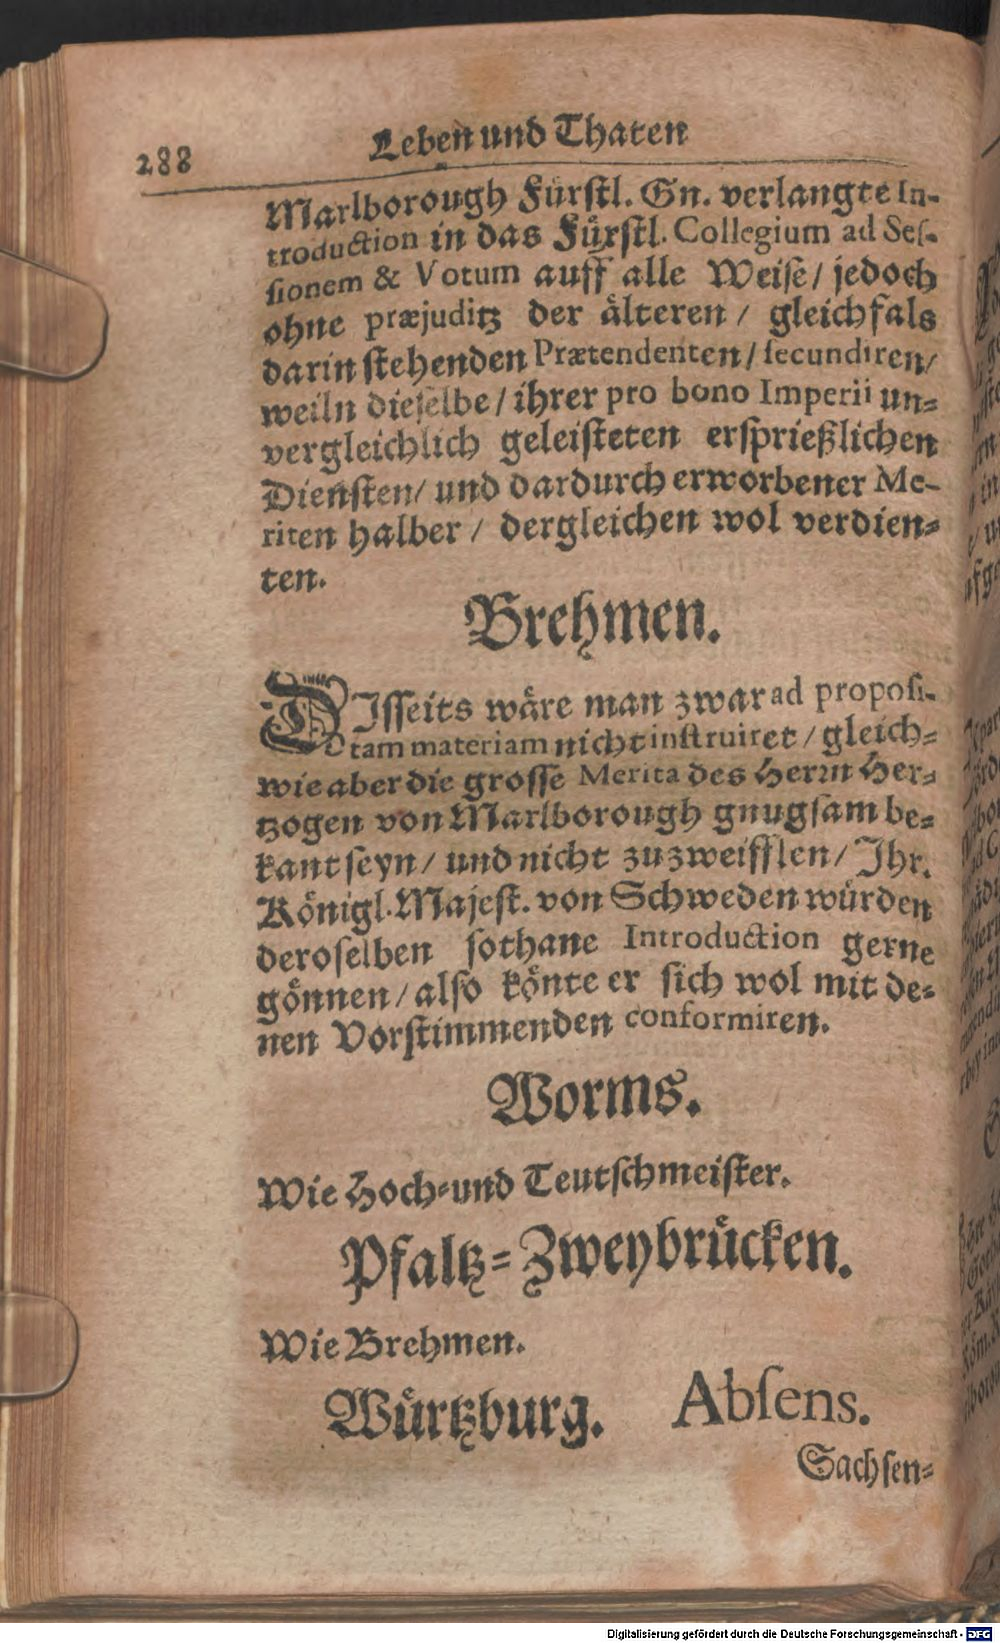 288 Leben und Thaten
Marlborough Fürstl. Gn. verlangte In-
troduction in das Fürstl. Collegium ad Ses-
sionem & Votum auff alle Weise / jedoch
ohne præjuditz der älteren / gleichfals
darin stehenden Prætendenten / secundiren /
weiln dieselbe / ihrer pro bono Imperii un-
vergleichlich geleisteten ersprießlichen
Diensten / und dardurch erworbener Me-
riten halber / dergleichen wol verdien-
ten.
Brehmen.
DIsseits wäre man zwar ad proposi-
tam materiam nicht instruiret / gleich-
wie aber die grosse Merita des Herrn Her-
tzogen von Marlborough gnugsam be-
kant seyn / und nicht zuzweifflen / Ihr.
Königl. Majest. von Schweden würden
deroselben sothane Introduction gerne
gönnen / also könte er sich wol mit de-
nen Vorstimmenden conformiren.
Worms.
Wie Hoch- und Teutschmeister.
Pfaltz-Zweybrücken.
Wie Brehmen.
Würtzburg. Absens.
Sachsen-
Digitalisierung gefördert durch die Deutsche Forschungsgemeinschaft - DFG